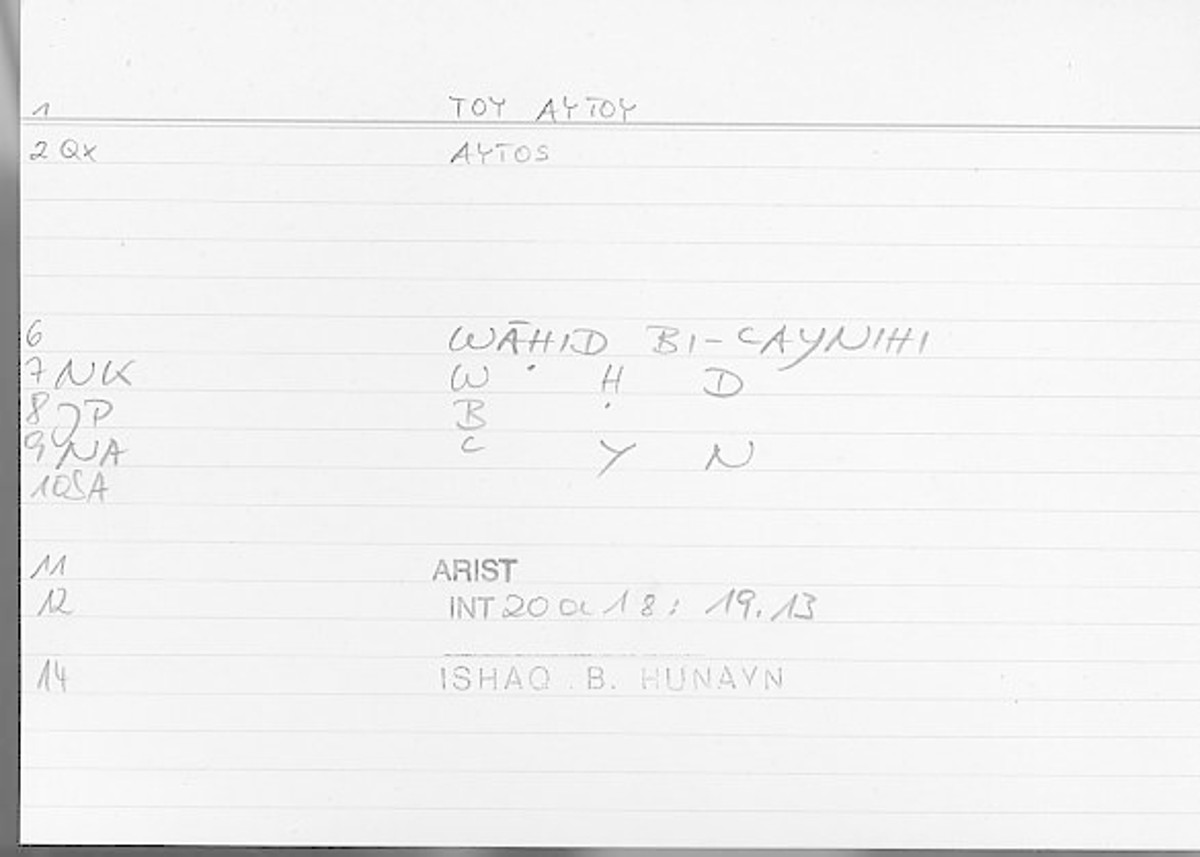 1 TOY AYTOY
2 QX AYTOS
6 WĀḤID BI-CAYNIHI
7 NK W Ḥ D
8 JP B
9 NA C Y N
10 SA
11 ARIST
12 INT 20 a 18: 19.13
14 ISHAQ B. HUNAYN